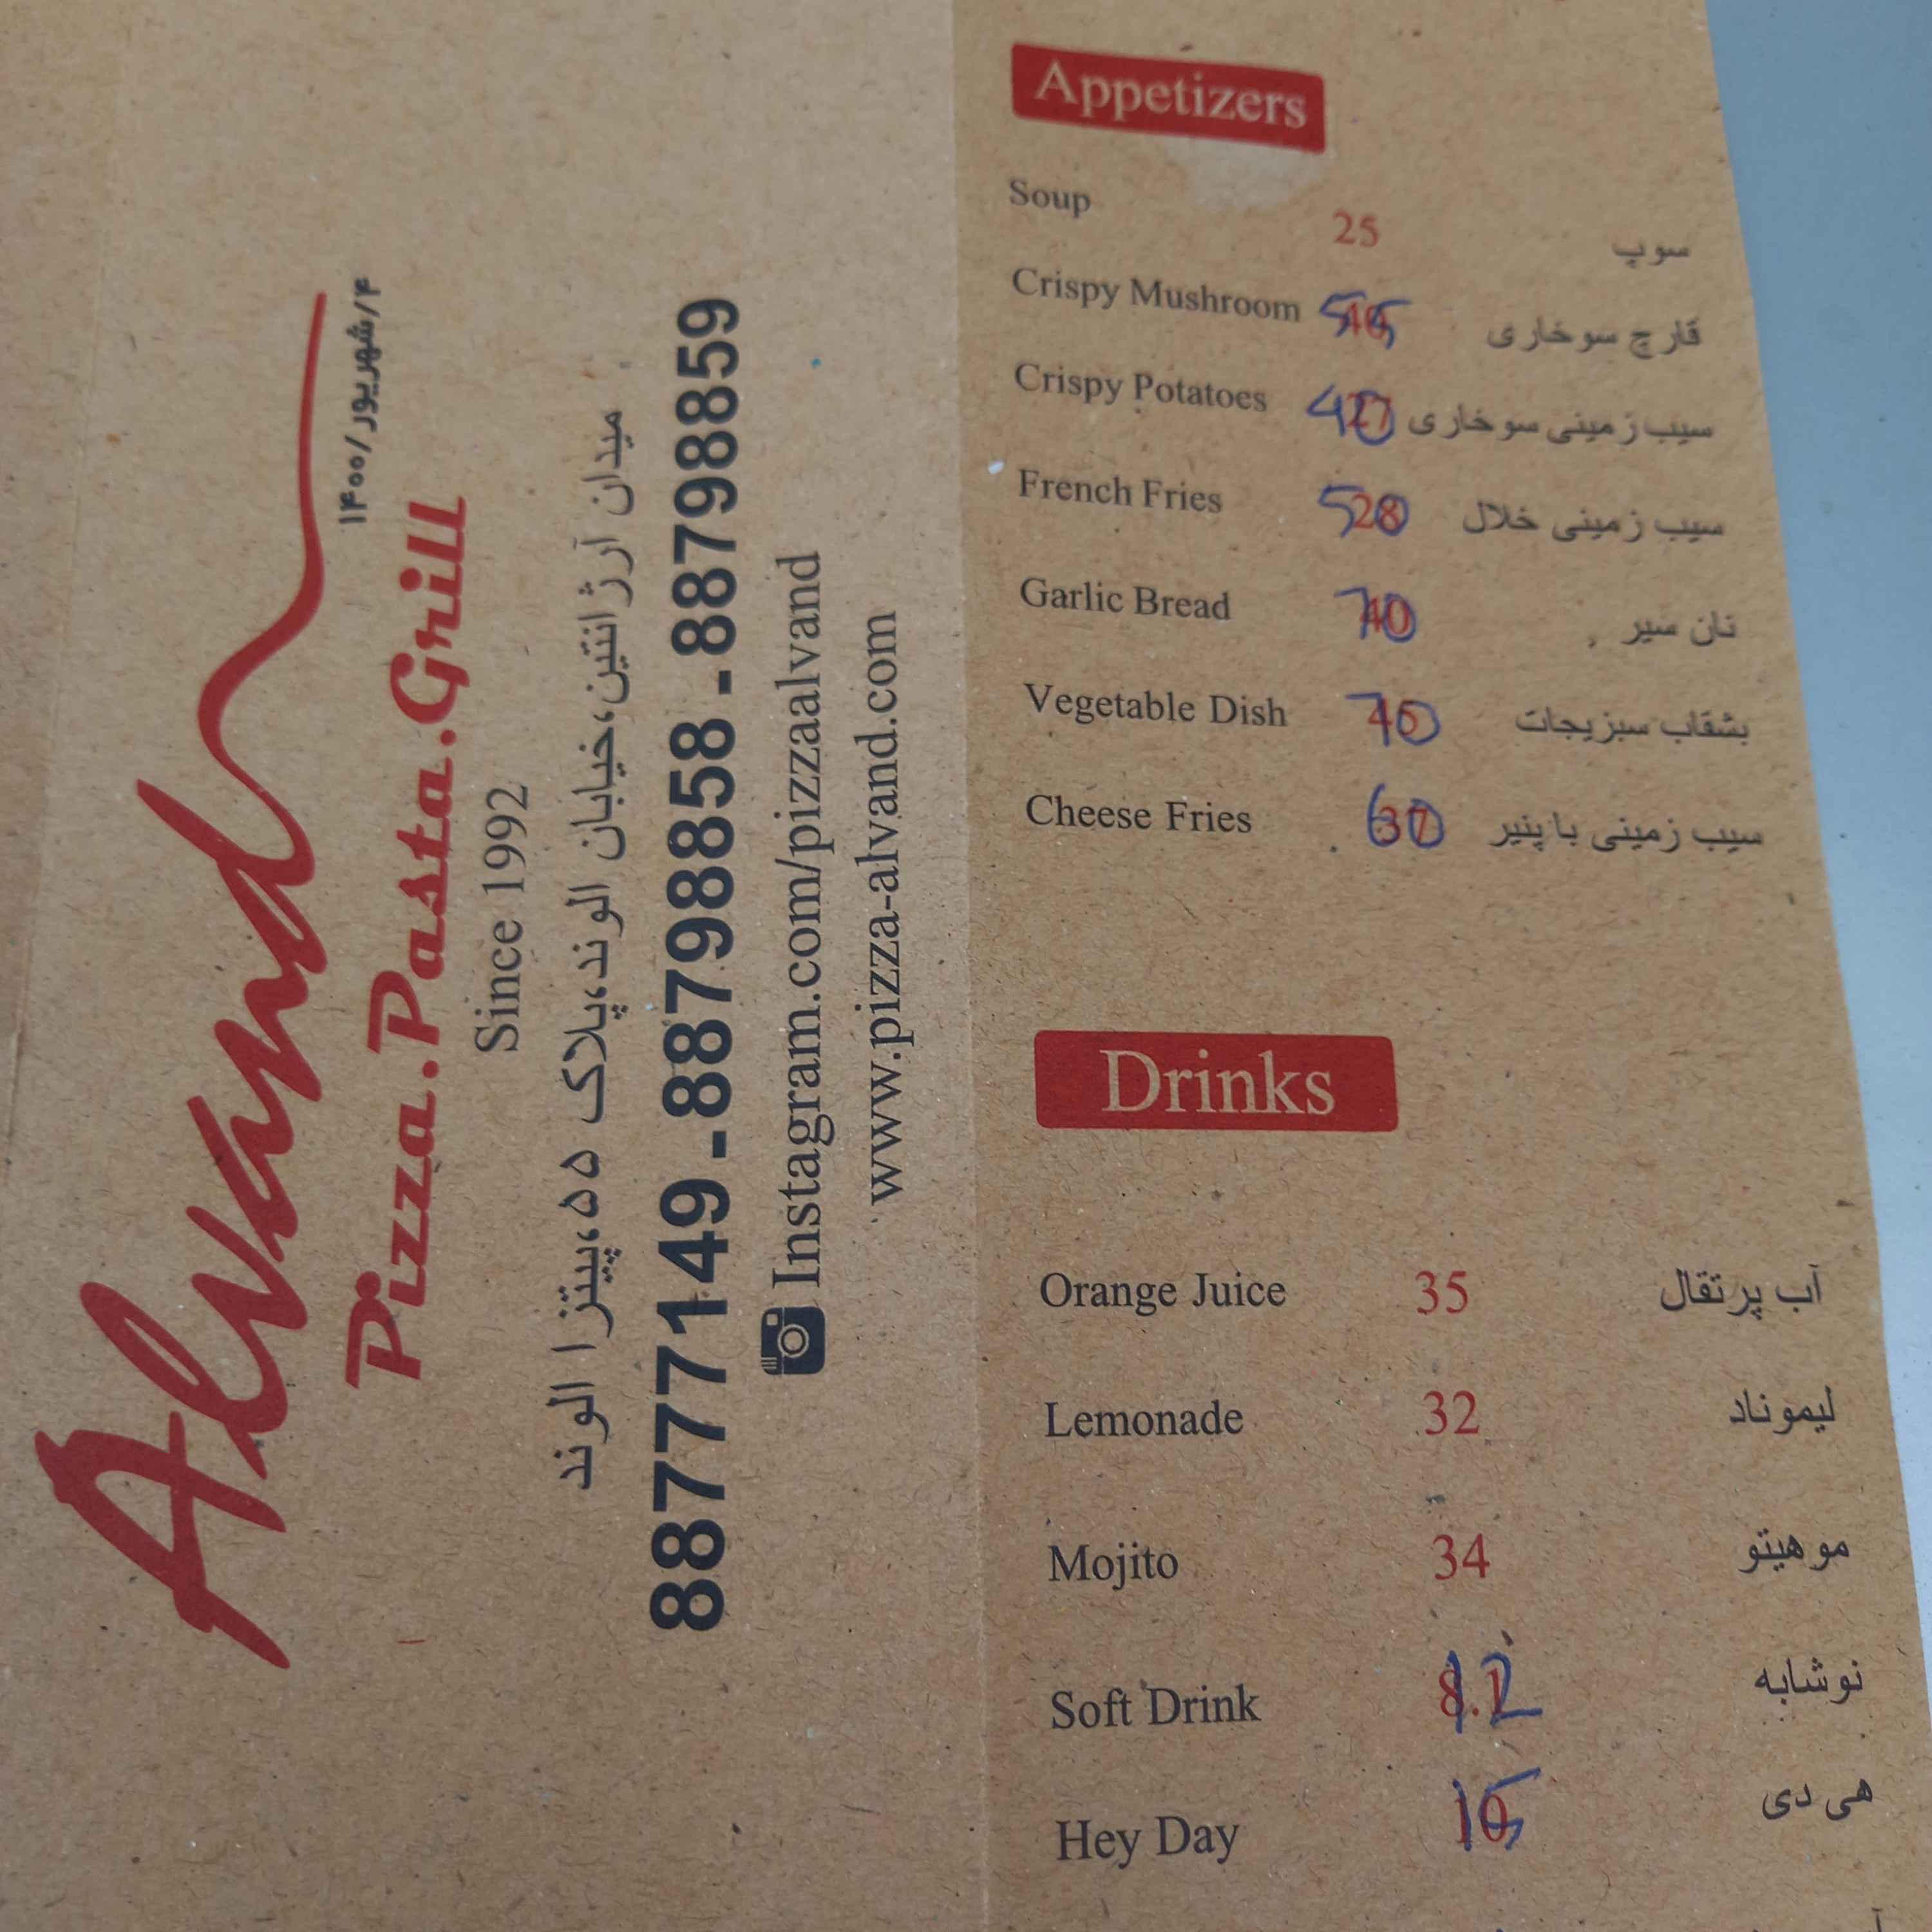 Alvand
۴/شهریور/۱۴۰۰
Pizza.Pasta.Grill
Since 1992
میدان آرژانتین،خیابان الوند،پلاک ۵۵،پیتزا الوند
88777149-88798858-88798859
Instagram.com/pizzaalvand
www.pizza-alvand.com
Appetizers
Soup 25 سوپ
Crispy Mushroom 55 قارچ سوخاری
Crispy Potatoes 40 سیب زمینی سوخاری
French Fries 50 سیب زمینی خلال
Garlic Bread 70 نان سیر
Vegetable Dish 70 بشقاب سبزیجات
Cheese Fries 60 سیب زمینی با پنیر
Drinks
Orange Juice 35 آب پرتقال
Lemonade 32 لیموناد
Mojito 34 موهیتو
Soft Drink 12 نوشابه
Hey Day 15 هی دی